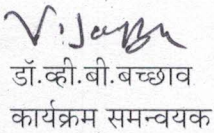 डॉ.व्ही.बी.बच्छाव
कार्यक्रम समन्वयक